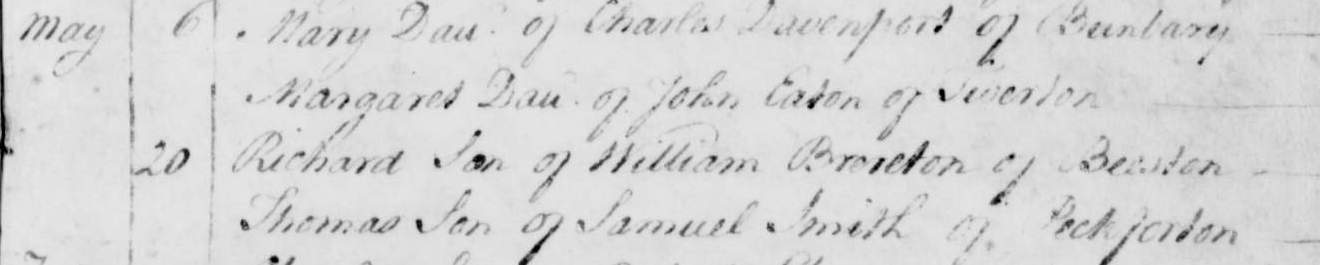 May 6 Mary Dau. of Charles Davenport of Bunbary
Margaret Dau. of John Eaton of Tiverton
20 Richard Son of William Brereton of Beeston
Thomas Son of Samuel Smith of Peckforton